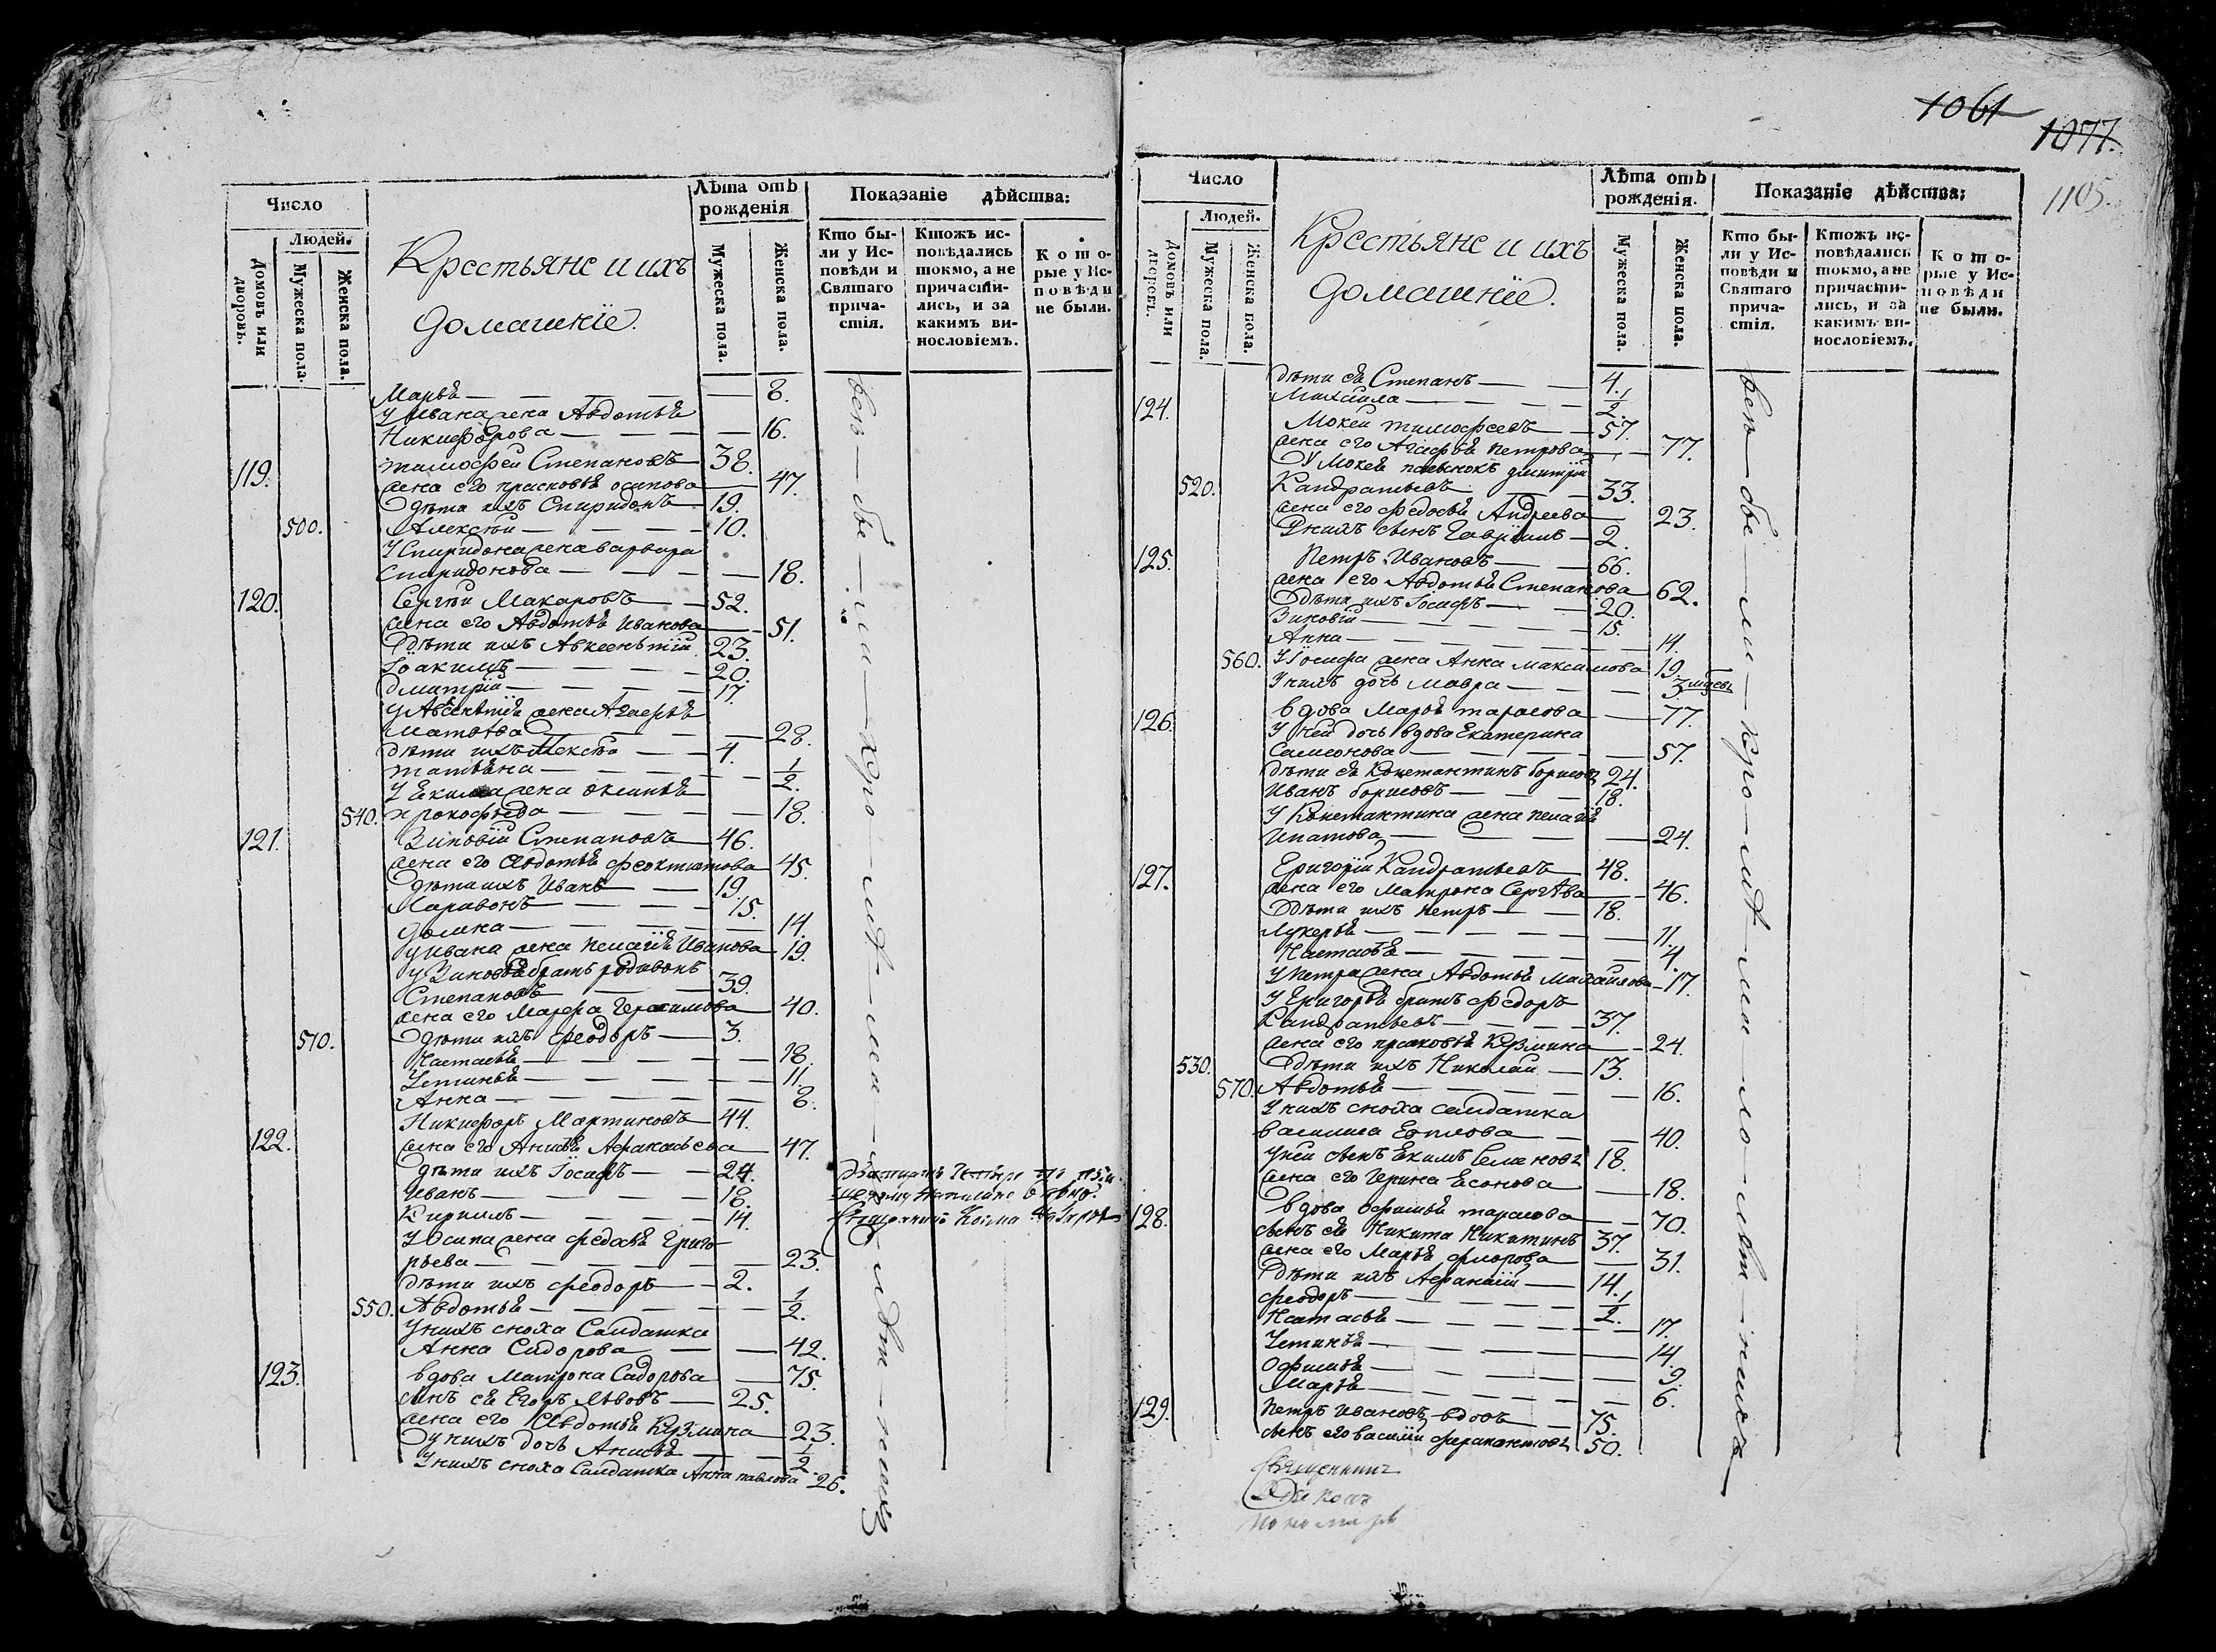 Число
Людей.
Домовъ или дворовъ.
Мужеска пола.
Женска пола.
Крестьяне и ихъ
домашнїе.
Лѣта отъ рожденія
Мужеска пола.
Женска пола.
Показаніе дѣйства:
Кто бы-
ли у Ис-
повѣди и
Святаго
прича-
стія.
Ктожъ ис-
повѣдались
токмо, а не
причасти-
лись, и за
какимъ ви-
нословіемъ.
К о т о-
рые у Ис-
повѣди
не были.
Марья 8.
У Ивана жена Авдотья
Никифорова 16.
119. Тимофей Степановъ 38.
жена его Прасковья Осипова 47.
дѣти ихъ Спиридонъ 19.
500. Алексѣй 10.
У Спиридона жена Варвара
Спиридонова 18.
120. Сергѣй Макаровъ 52.
жена его Авдотья Иванова 51.
дѣти ихъ Авксентїй 23.
Іоакимъ 20.
Дмитрїй 17.
У Авксентїя жена Агафья
28.
дѣти ихъ 4.
Татьяна 1/2.
У Екима жена
540. Прокофьева 18.
121. Зиновїй Степановъ 46.
жена его Авдотья Феоктистова 45.
дѣти ихъ Иванъ 19.
Ларивонъ 15.
Домна 14.
У Ивана жена Пелагїя Иванова 19.
У Зиновья братъ Родивонъ
Степановъ 39.
жена его Марфа Герасимова 40.
510. дѣти ихъ Феодоръ 3.
Настасья 18.
Устинья 11.
Анна 8.
122. Никифоръ Мартиновъ 44.
жена его Анисья Афанасьева 47.
дѣти ихъ Іосифъ 24.
Иванъ 18.
Кирилъ 14.
У Осипа жена Федосья Григо
рьева 23.
дѣти ихъ Феодоръ 2.
550. Авдотья 1/2.
У нихъ сноха Салдатка
Анна Сидорова 42.
123. Вдова Матрона Сидорова 75.
сынъ ея Егоръ Львовъ 25.
жена его Авдотья Кузмина 23.
У нихъ дочь Анисья 1/2.
У нихъ сноха Салдатка Анна Павлова 26.
1061
1077.
1105.
Число
Людей.
Домовъ или дворовъ.
Мужеска пола.
Женска пола.
Крестьяне и ихъ
домашнїе.
Лѣта отъ рожденія.
Мужеска пола.
Женска пола.
Показаніе дѣйства:
Кто бы-
ли у Ис-
повѣди и
Святаго
прича-
стія.
Ктожъ ис-
повѣдались
токмо, а не
причасти-
лись, и за
какимъ ви-
нословіемъ.
К о т о-
рые у Ис-
повѣди
не были.
дѣти ея Степанъ 4.
Михаила 1/2.
124. Мокей Тимофеевъ 57.
жена его Агафья Петрова 77.
У Мокея Дмитрїй
520. Кандратьевъ 33.
жена его Федосья Андреева 23.
У нихъ сынъ Гаврїилъ 2.
125. Петръ Ивановъ 66.
жена его Авдотья Степанова 62.
дѣти ихъ Іосифъ 20.
Зиновїй 15.
Анна 14.
560. У Іосифа жена Анна Максимова 19.
У нихъ дочь Мавра 3 мцевъ
126. Вдова Марья Тарасова 77.
У ней дочь вдова Екатерина
Самсонова 57.
дѣти ея Констактинъ Борисовъ 24.
Иванъ Борисовъ 18.
У Констактина жена Пелагїя
Ипатова 24.
127. Григорїй Кандратьевъ 48.
жена его Матрона Сергѣва 46.
дѣти ихъ Петръ 18.
Лукерья 11.
Настасья 4.
У Петра жена Авдотья Михайлова 17.
У Григорья братъ Федоръ
Кандратьевъ 37.
жена его Прасковья Кузмина 24.
530. дѣти ихъ Николай 13.
570. Авдотья 16.
У нихъ сноха салдатка
Василиса 40.
У ней сынъ Екимъ 18.
жена его Ирина 18.
128. Вдова Тарасова 70.
сынъ ея Никита Никитинъ 37.
жена его Марья Фролова 31.
дѣти ихъ Афанасїй 14.
Феодоръ 1/2.
Настасья 17.
Устинья 14.
9.
Марья 6.
129. Петръ Ивановъ вдовъ 75.
сынъ его Василїй 50.
Священникъ
Дїаконъ
Пономарь